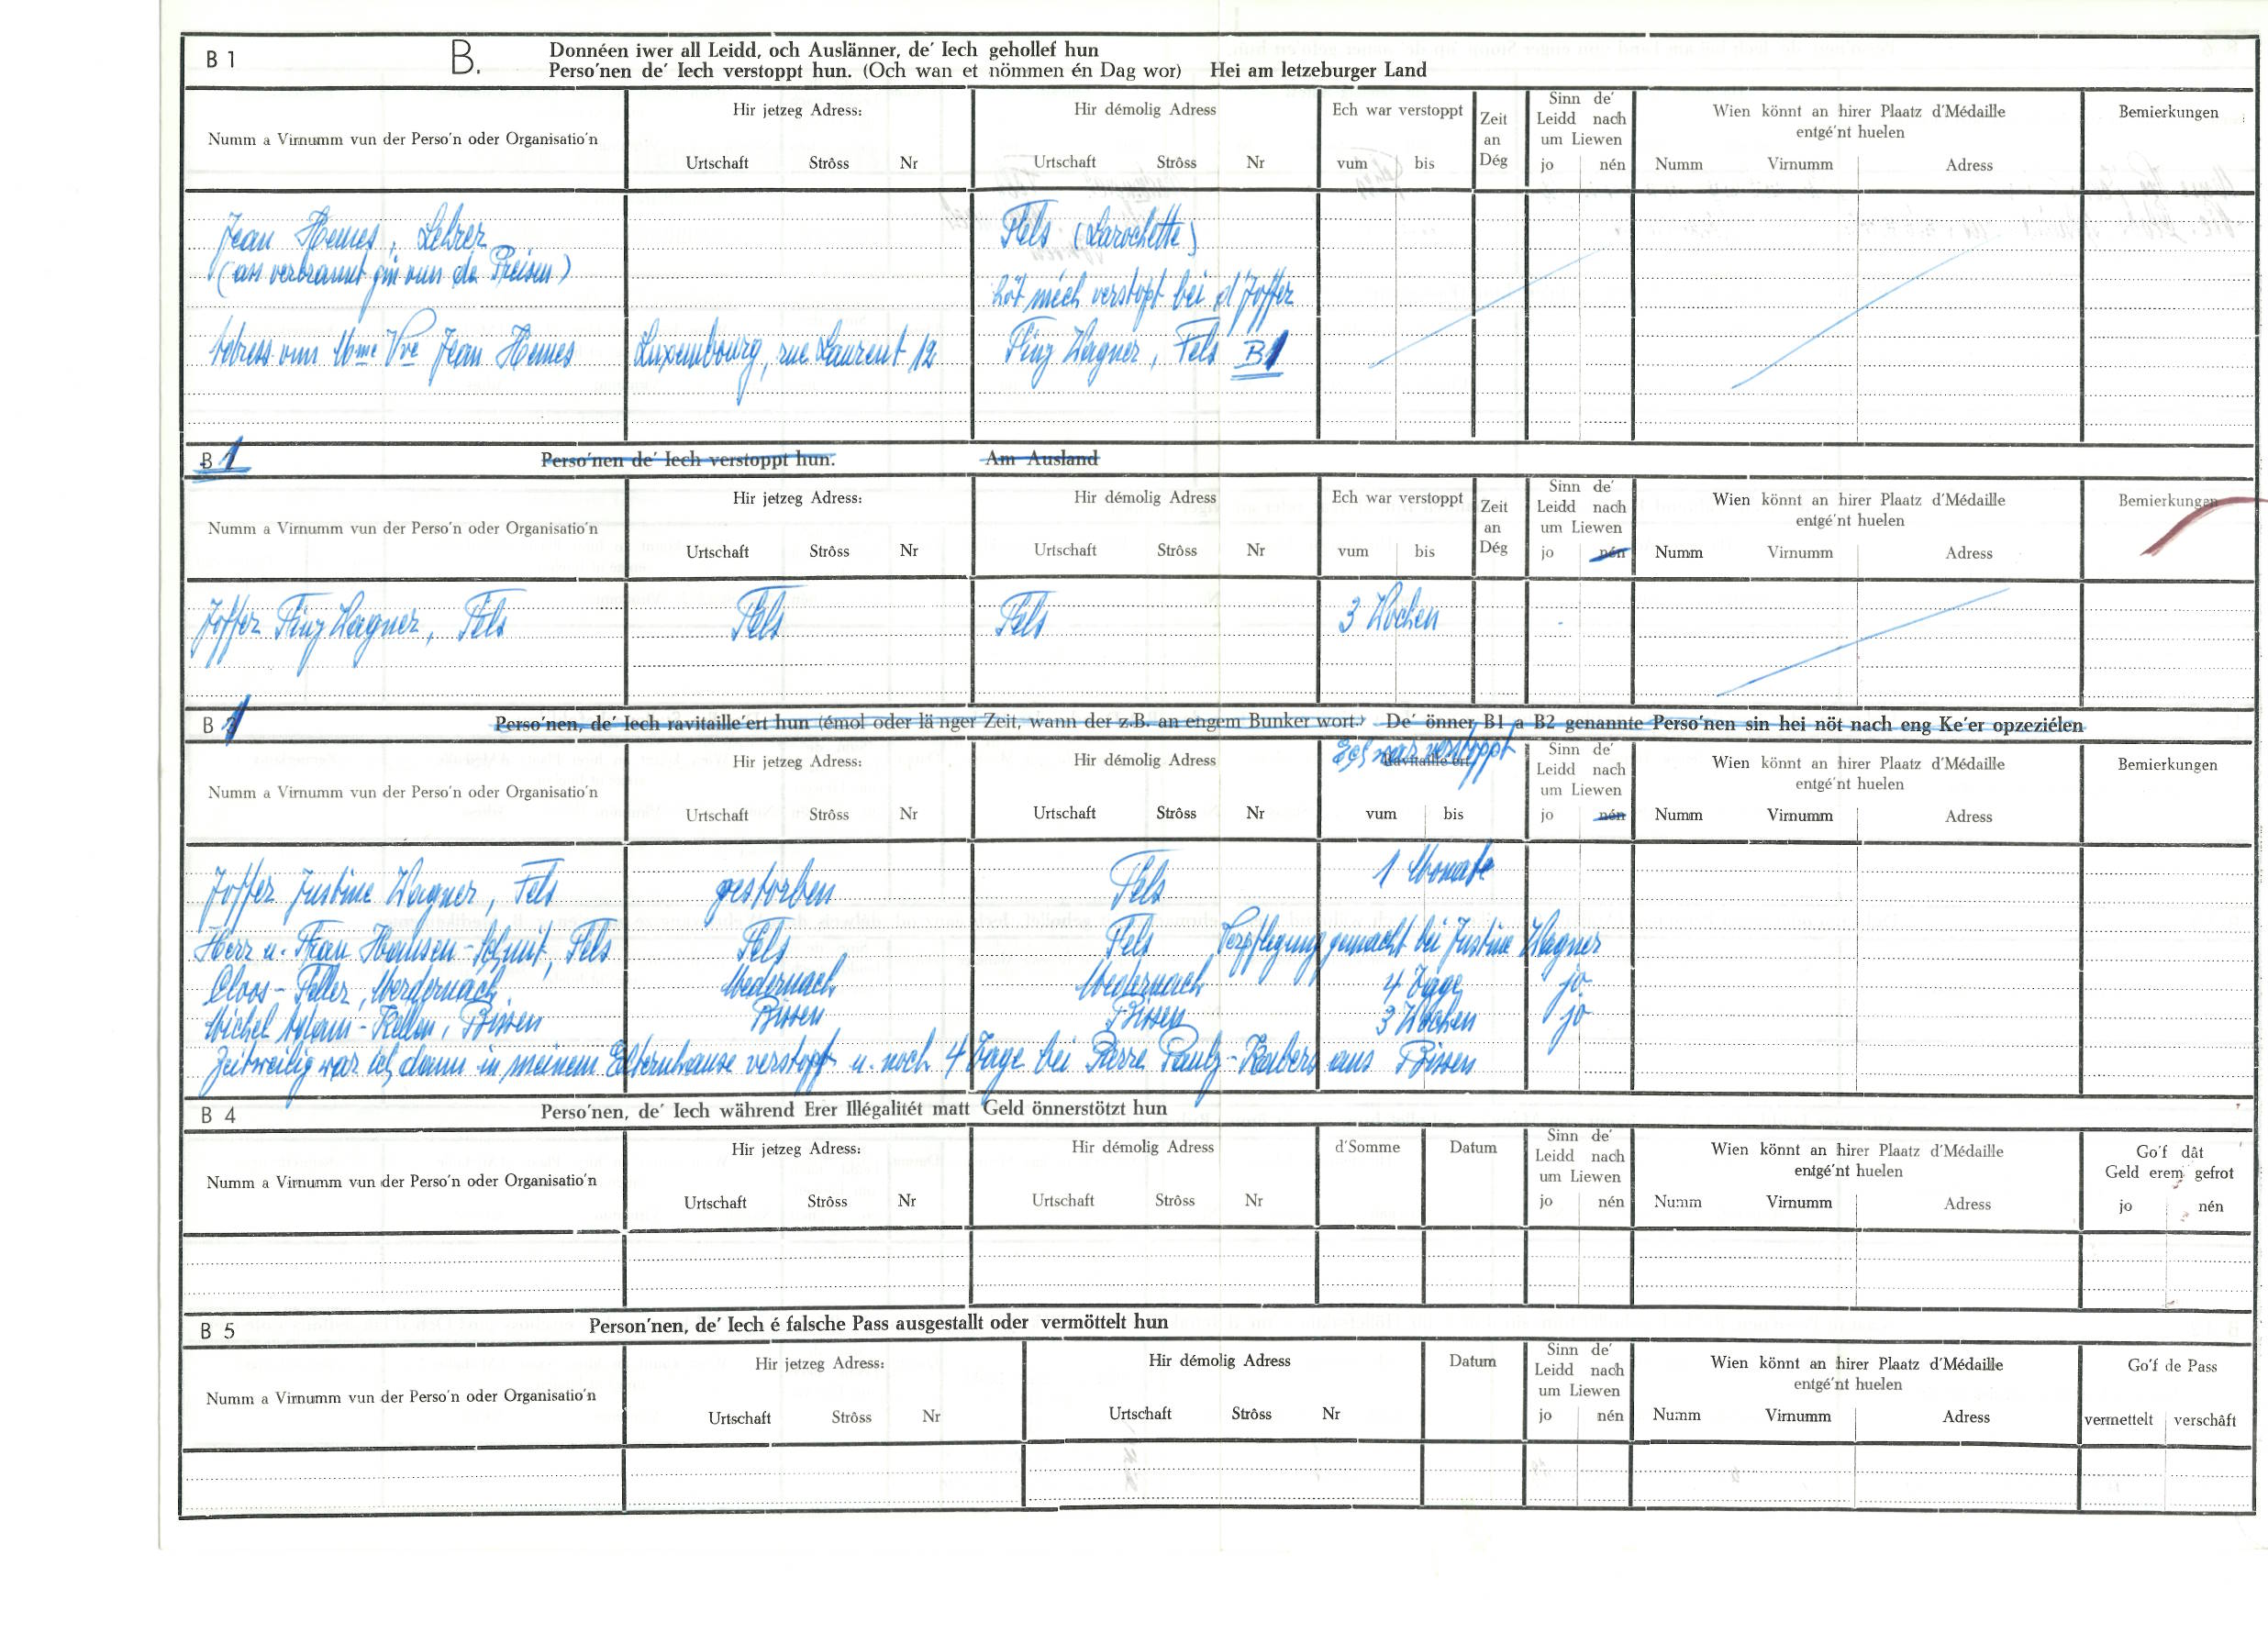 B 1 B. Donnéen iwer all Leidd, och Auslänner, de' Iech gehollef hun
Perso'nen de' Iech verstoppt hun. (Och wan et nömmen én Dag wor) Hei am letzeburger Land
Numm a Virnumm vun der Perso'n oder Organisatio'n
Hir jetzeg Adress:
Urtschaft Strôss Nr
Hir démolig Adress
Urtschaft Strôss Nr
Ech war verstoppt
vum bis
Zeit an Dég
Sinn de' Leidd nach um Liewen
jo nén
Wien könnt an hirer Plaatz d'Médaille entgé'nt huelen
Numm Virnumm Adress
Bemierkungen
Jean Hemes, Lehrer Fels (Larochette)
(ass verbrannt gin vun de Preisen) hôt mech verstopt bei d'Joffer
Adress vun Mme Vve Jean Hemes Luxembourg, rue Laurent 12 Finy Wagner, Fels B1
B 1 Perso'nen de' Iech verstoppt hun. Am Ausland
Numm a Virnumm vun der Perso'n oder Organisatio'n
Hir jetzeg Adress:
Urtschaft Strôss Nr
Hir démolig Adress
Urtschaft Strôss Nr
Ech war verstoppt
vum bis
Zeit an Dég
Sinn de' Leidd nach um Liewen
jo nén
Wien könnt an hirer Plaatz d'Médaille entgé'nt huelen
Numm Virnumm Adress
Bemierkungen
Joffer Finy Wagner, Fels Fels Fels 3 Wochen
B 1 Perso'nen, de' Iech ravitaille'ert hun (émol oder länger Zeit, wann der z.B. an engem Bunker wort.) De' önner B1 a B2 genannte Perso'nen sin hei nöt nach eng Ke'er opzeziélen
Numm a Virnumm vun der Perso'n oder Organisatio'n
Hir jetzeg Adress:
Urtschaft Strôss Nr
Hir démolig Adress
Urtschaft Strôss Nr
Ech war verstoppt
Ravitaille'ert
vum bis
Sinn de' Leidd nach um Liewen
jo nén
Wien könnt an hirer Plaatz d'Médaille entgé'nt huelen
Numm Virnumm Adress
Bemierkungen
Joffer Justine Wagner, Fels gestorben Fels 1 Monat
Herr u. Frau Hansen-Schmit, Fels Fels Fels Verpflegung gemacht bei Justine Wagner
Cloos-Feller, Medernach Medernach Medernach 4 Tage jo
Michel Adam-Keller, Bissen Bissen Bissen 3 Wochen jo
Zeitweilig war ich dann in meinem Elternhause verstopft u. noch 4 Tage bei Pierre aus Bissen
B 4 Perso'nen, de' Iech während Erer Illégalitét matt Geld önnerstötzt hun
Numm a Virnumm vun der Perso'n oder Organisatio'n
Hir jetzeg Adress:
Urtschaft Strôss Nr
Hir démolig Adress
Urtschaft Strôss Nr
d'Somme
Datum
Sinn de' Leidd nach um Liewen
jo nén
Wien könnt an hirer Plaatz d'Médaille entgé'nt huelen
Numm Virnumm Adress
Go'f dât Geld erem gefrot
jo nén
B 5 Person'nen, de' Iech é falsche Pass ausgestallt oder vermöttelt hun
Numm a Virnumm vun der Perso'n oder Organisatio'n
Hir jetzeg Adress:
Urtschaft Strôss Nr
Hir démolig Adress
Urtschaft Strôss Nr
Datum
Sinn de' Leidd nach um Liewen
jo nén
Wien könnt an hirer Plaatz d'Médaille entgé'nt huelen
Numm Virnumm Adress
Go'f de Pass
vermettelt verschâft